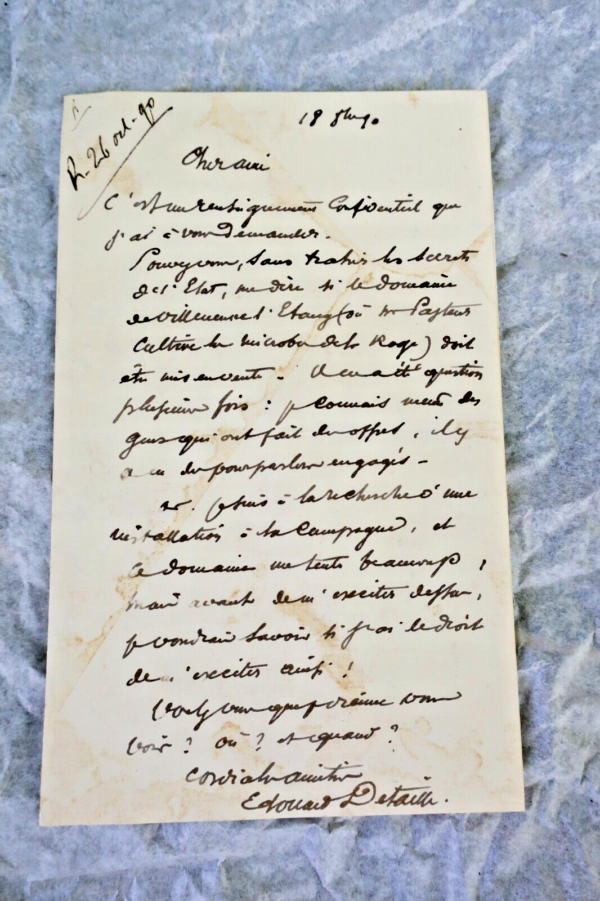 R. 26 oct. 90
18 8bre 90
Cher ami
C'est un renseignement confidentiel que
j'ai à vous demander.
Pouvez vous, sans trahir les secrets
de l'Etat, me dire si le domaine
de Villeneuve l'Etang (où Mr Pasteur
cultive le microbe de la Rage) doit
être mis en vente. Il en a été question
plusieurs fois : je connais même des
gens qui ont fait des offres, il y
a eu des pourparlers engagés.
je suis à la recherche d'une
installation à la campagne, et
ce domaine me tente beaucoup,
mais avant de m'exciter dessus,
je voudrais savoir si j'ai le droit
de m'exciter ainsi !
Voulez vous que je vienne vous
voir ? où ? et quand ?
cordiale amitié
Edouard Detaille.